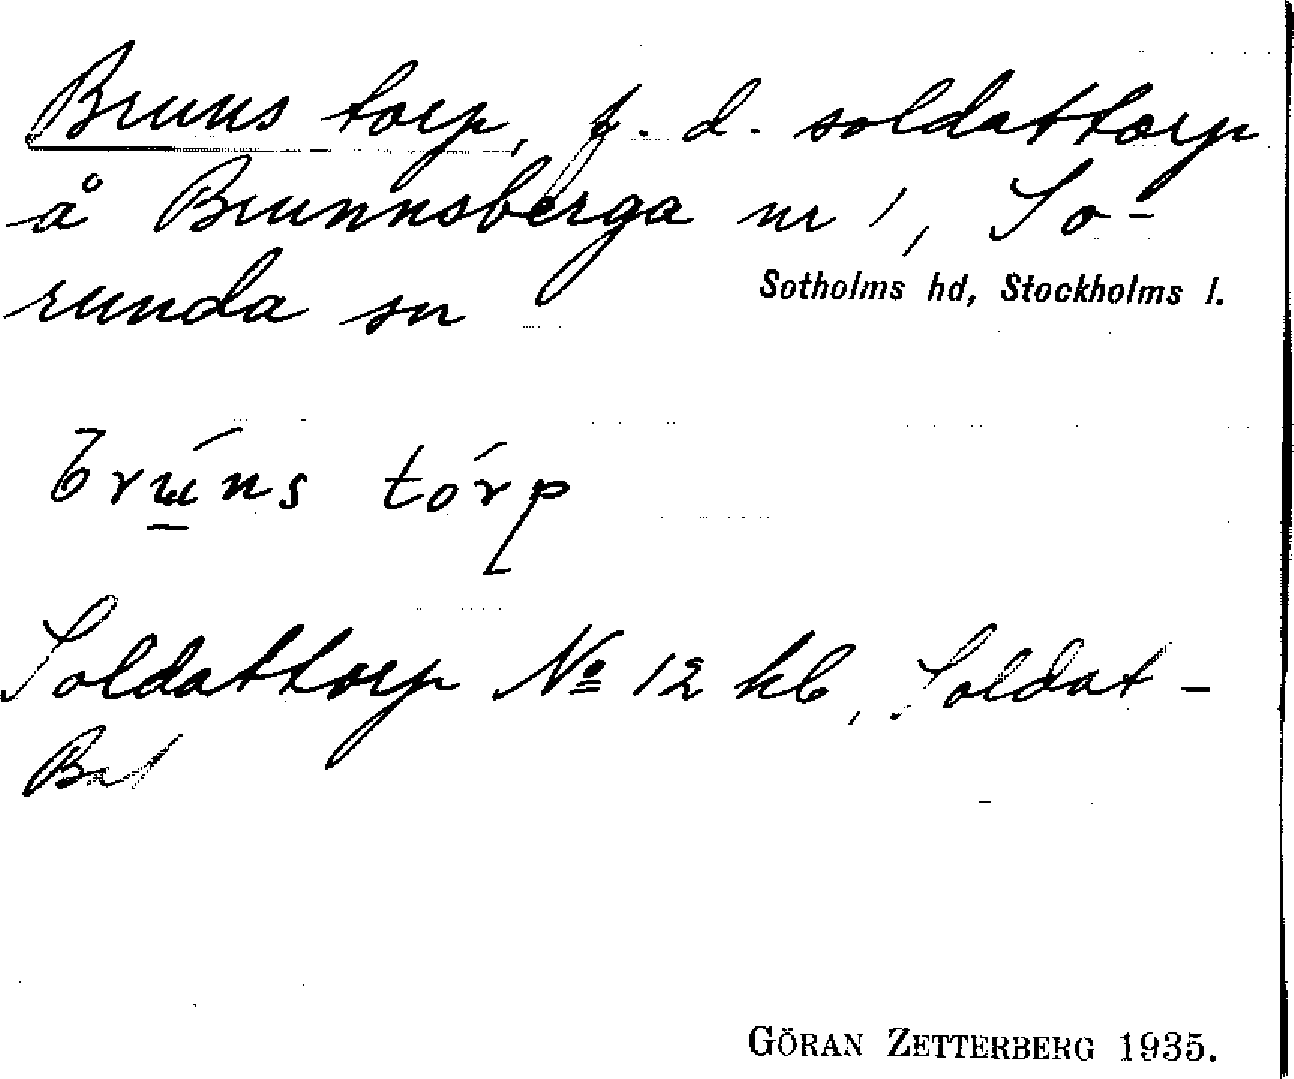 Bruns torp, f. d. soldattorp
å Brunnsberga nr 1, So-
runda sn
Sotholms hd, Stockholms l.
brúns tórp
Soldattorp No 12 kb, Soldat-
GÖRAN ZETTERBERG 1935.